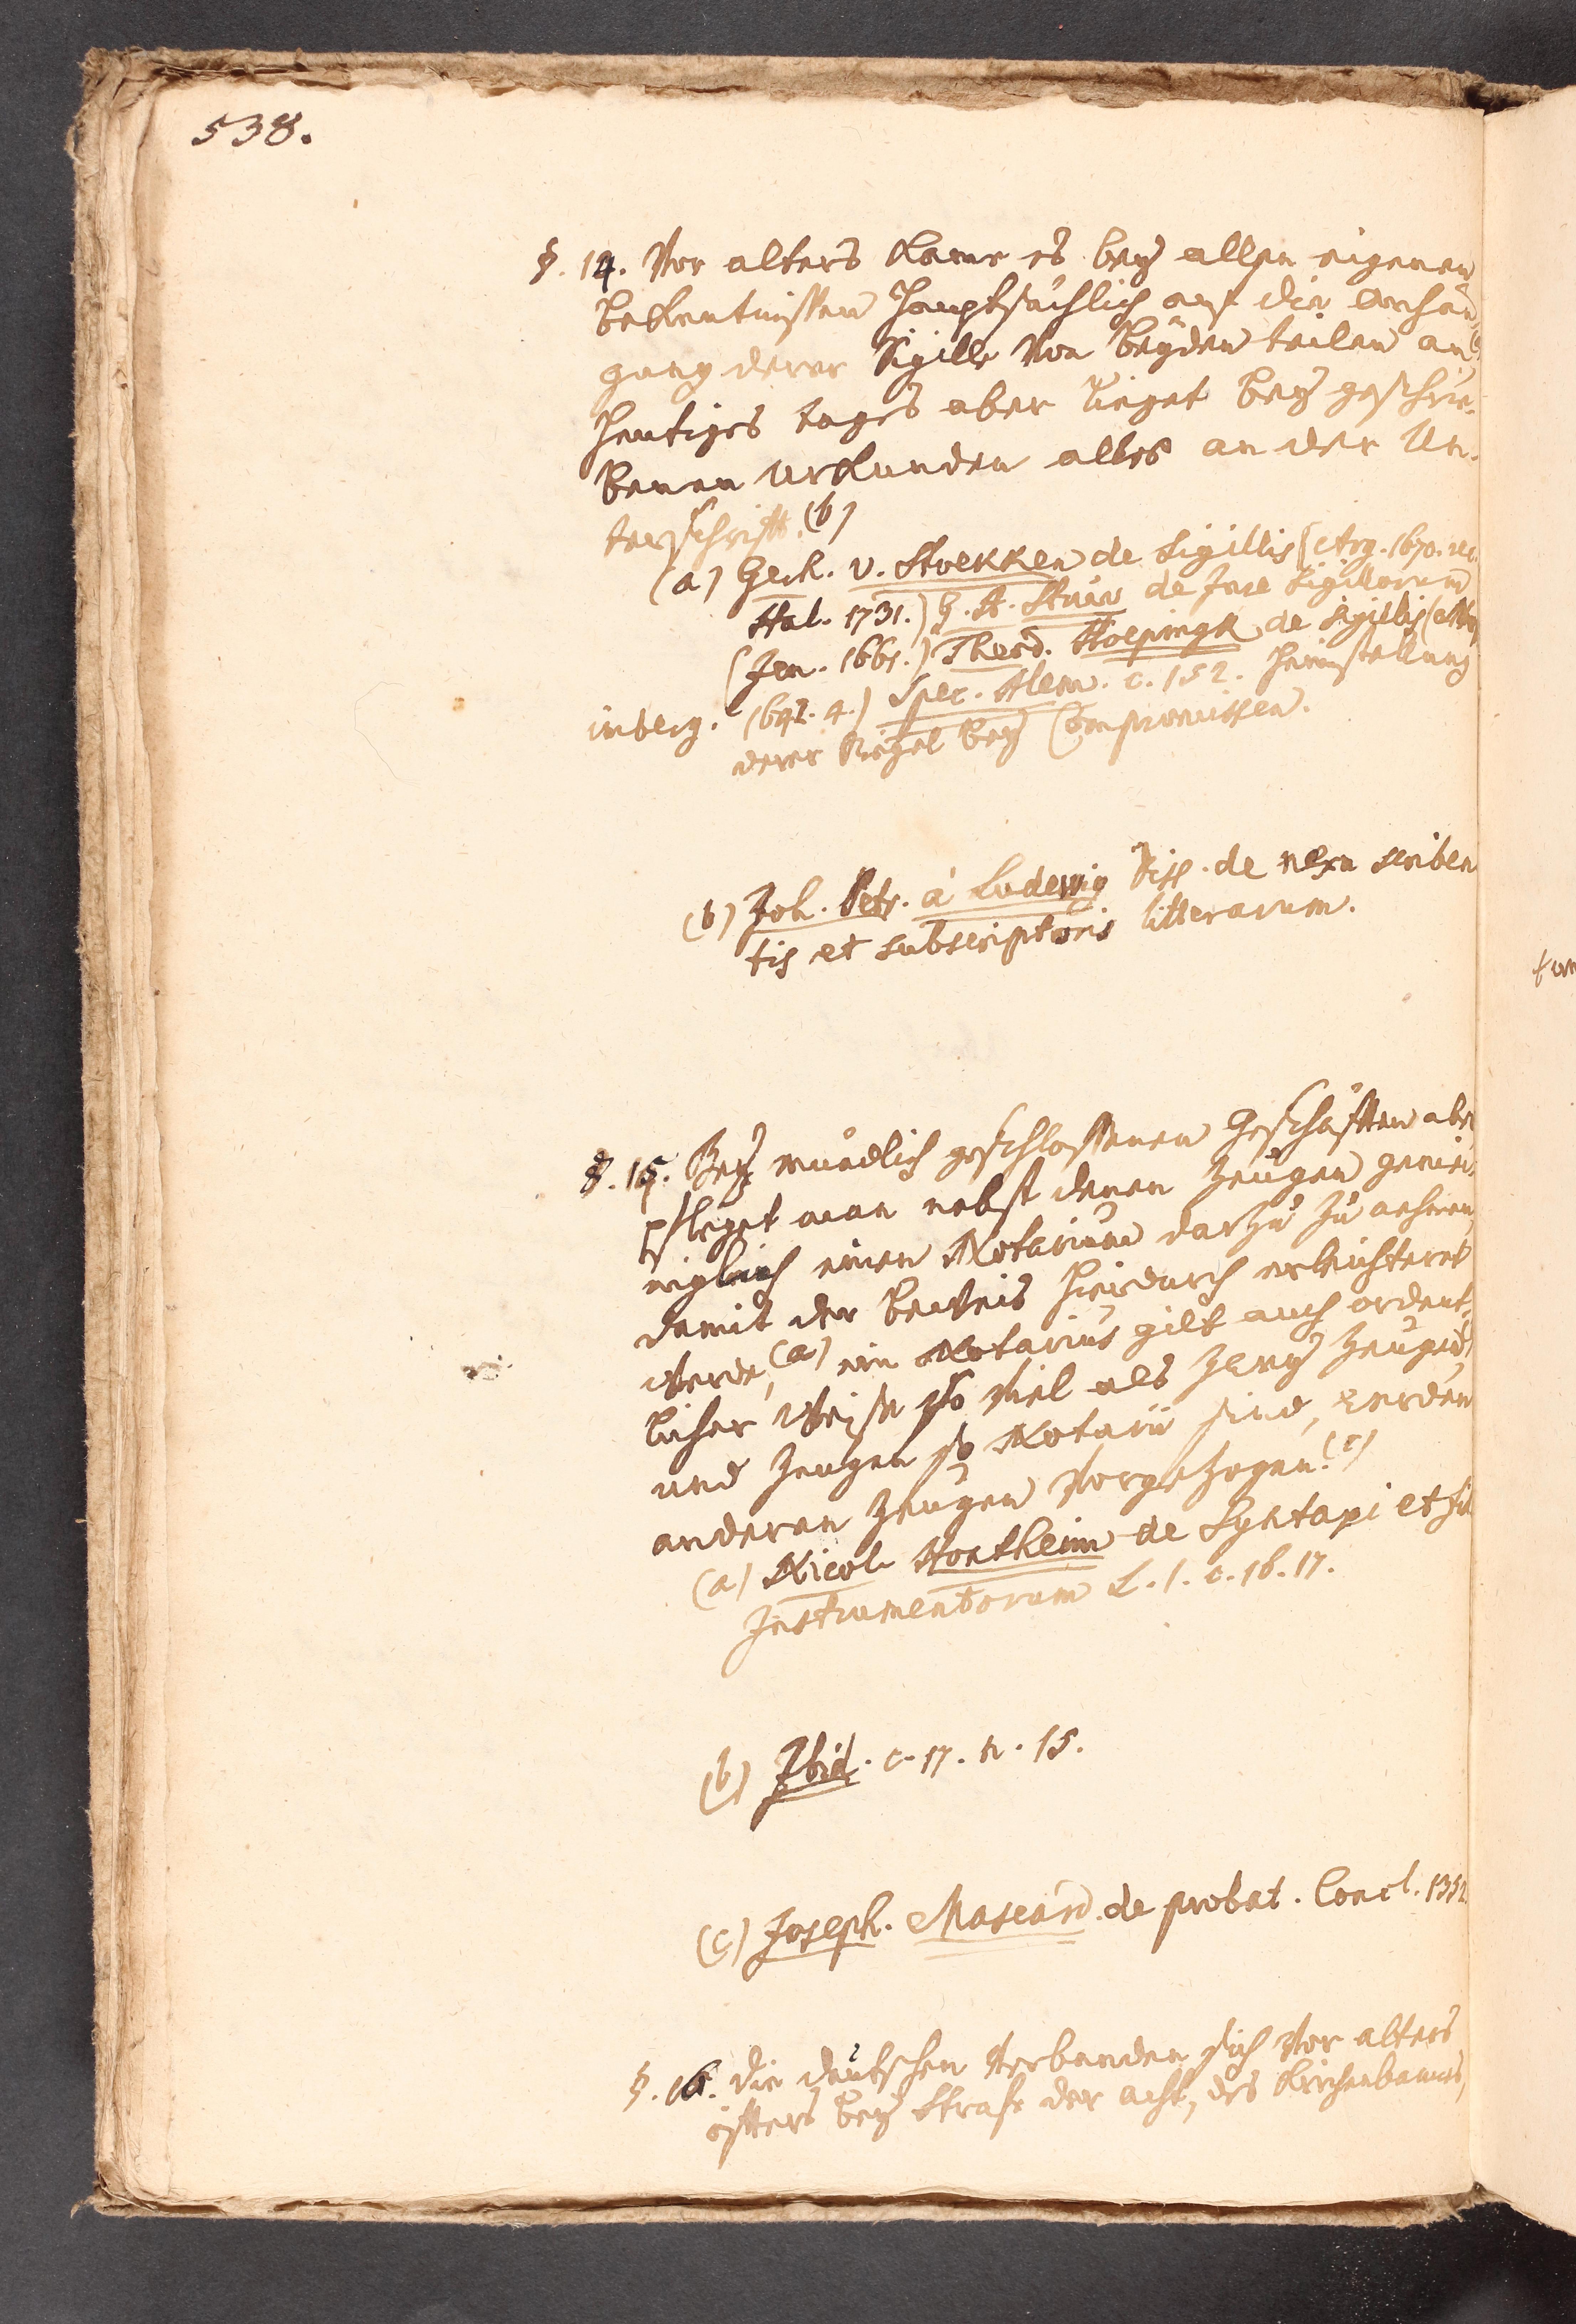 538.
§. 14. Vor alters kame es bey allen eigenen
bekentnissen hauptsächlich auf die anhän
gung derer Sigille von beyden teilen an
heutiges tages aber lieget bey geschrie-
benen urkunden alles an der Un-
terschrifft. (b)
(a) Gerh. v. Stoekken de Sigillis (Arg. 1670. rec
Hal. 1731.) G. A. Struv de Jure Sigillorum
(Jen. 1661.) Theod. Hoepingk de Sigillis (
imberg. 1642. 4.) Spec. Alem. c. 152. Heimstellung
derer Siegel bey Compromissen.
(b) Joh. Petr. à Ludewig Diss. de nexu scriben
tis et subscriptoris litterarum.
§. 15. Bey mündlich geschlossenen Geschäfften aber
pfleget man nebst denen Zeugen gemei-
niglich einen Notarium darzu zu nehmen,
damit der beweis hierdurch erleichteret
werde, (a) ein Notarius gilt auch ordent-
licher Weise so viel als zwey Zeugen (b)
und Zeugen so Notarii sind, werden
anderen Zeugen vorgezogen. (c)
(a) Nicol. Hontheim de Syntaxi et fid
Instrumentorum L. 1. c. 16. 17.
(b) Ibid. c. 17. n. 15.
(c) Joseph. Mascard. de probat. Concl. 1352
§. 16. die deutschen verbanden sich vor alters
öffters bey Strafe der acht, des Kirchenbannes,